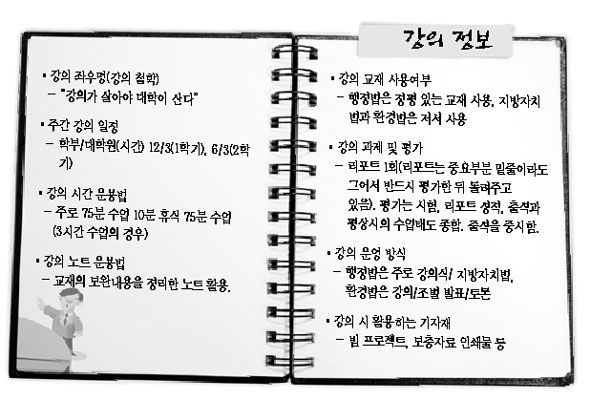 강의 정보
▪ 강의 좌우명(강의 철학)
– "강의가 살아야 대학이 산다"
▪ 주간 강의 일정
– 학부/대학원(시간) 12/3(1학기), 6/3(2학
기)
▪ 강의 시간 운용법
– 주로 75분 수업 10분 휴식 75분 수업
(3시간 수업의 경우)
▪ 강의 노트 운용법
– 교재의 보완내용을 정리한 노트 활용.
▪ 강의 교재 사용여부
– 행정법은 정평 있는 교재 사용, 지방자치
법과 환경법은 저서 사용
▪ 강의 과제 및 평가
– 리포트 1회(리포트는 중요부분 밑줄이라도
그어서 반드시 평가한 뒤 돌려주고
있음). 평가는 시험, 리포트 성적, 출석과
평상시의 수업태도 종합. 출석을 중시함.
▪ 강의 운영 방식
– 행정법은 주로 강의식/ 지방자치법,
환경법은 강의/조별 발표/토론
▪ 강의 시 활용하는 기자재
– 빔 프로젝트, 보충자료 인쇄물 등